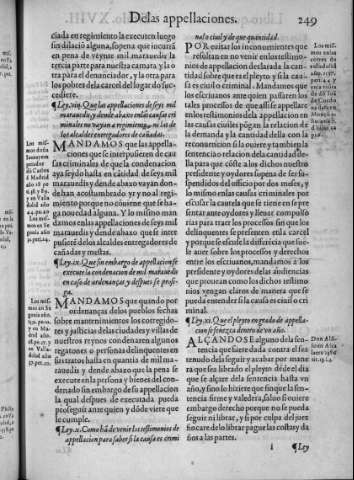 De las appellaciones.
249
ciada en regimiento la executen luego
sin dilacion alguna, so pena que incurra
en pena de veynte mil marauedis la
tercia parte para nuestra camara, y la o
tra para el denunciador, y la otra para
los pobres de la carcel del lugar do suc
cediere.
¶Ley.viij. Que las appellaciones de seys mil
marauedis y dende abaxo en las causas cri
minales no vayan a regimiento, ni las de
los alcaldes entregadores de cañadas.
MANDAMOS que las appella
ciones que se interpusieren de cau
sas criminales de que la condenacion
aya seydo hasta en cantidad de seys mil
marauedis y dende abaxo vayan don
de han acostumbrado yr y no al regi
miento porque no conuiene que se ha
ga nouedad alguna. Y lo mismo man
damos en las appellaciones de seys mil
marauedis y dende abaxo que se inter
pusieren de los alcaldes entregadores de
cañadas y mestas.
¶Ley.ix. Que sin embargo de appellacion se
execute la condenacion de mil marauedis
en caso de ordenanças, y despues se prosi
ga.
MANDAMOS que quando por
ordenanças delos pueblos fechas
sobre mantenimientos los corregido
res y justicias de las ciudades y villas de
nuestros reynos condenaren algunos
regatones o personas delinquentes en
las tratos hasta en quantia de mil ma
rauedis y dende abaxo que la pena se
execute en la persona y bienes del con
denado sin embargo de appellacion,
la qual despues de executada pueda
proseguir ante quien y dõde viere que
le cumple.
¶Ley.x. Como hã de venir los testimonios de
appellacion para saber si la causa es crimi
nal o ciuil y de que quantidad.
POR euitar los inconuenientes que
resultan de no venir en los testimo
nios de appellacion declarada la can
tidad sobre que es el pleyto y si la cau
sa es ciuil o criminal. Mandamos que
los escriuanos ante quien passaren los
tales processos de que assi se appelare
en los testimonios de la appellacion en
las causas ciuiles pogan la relacion de
la demanda y la cantidad della con la
reconuencion si la ouiere y tambien la
sentencia o relacion della cantidad de
lla para que coste a los dichos nuestro
presidente y oydores so pena de ser sus
pendidos del officio por dos meses, y
lo mismo en las causas criminales por
escusar la cautela que se tiene en pre
sentar ante oydores y lleuar compulso
rias para traer los processos sin que los
delinquentes se presenten en la carcel
y porque se escuse la differencia que sue
le auer sobre los processos y derechos
entre los escriuanos, mandamos a los
presidente y oydores de las audiencias
que prouean como los dichos testimo
nios vengan claros de manera que se
pueda entender si la causa es ciuil o cri
minal.
¶Ley.xi. Que el pleyto en grado de appella-
cion se fenezca dentro de vn año.
ALÇANDOSE alguno de la sen-
tencia que fuere dada contra el sea
tenudo dela seguir y acabar por mane
ra que sea librado el pleyto desde el dia
que se alçare dela sentencia hasta vn
año, y si no lo hiziere que finque la sen-
tencia firme y valedera, saluo si ouiere
embargo derecho porque no lo pueda
seguir ni librar, y si por culpa del juez
fincare de lo librar pague las costas y da
ños a las partes.
¶Ley